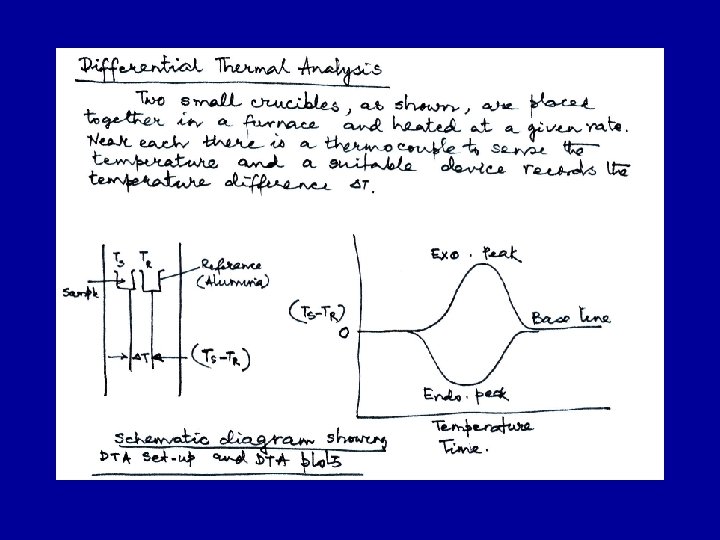 Differential Thermal Analysis
Two small crucibles, as shown, are placed
together in a furnace and heated at a given rate.
Near each there is a thermocouple to sense the
temperature and a suitable device records the
temperature difference ΔT.
Ts TR
Sample
Reference
(Alumina)
ΔT
(Ts-TR)
Exo. Peak
(Ts-TR)
0
Base line
Endo. peak
Temperature
Time.
Schematic diagram showing
DTA set-up and DTA plots